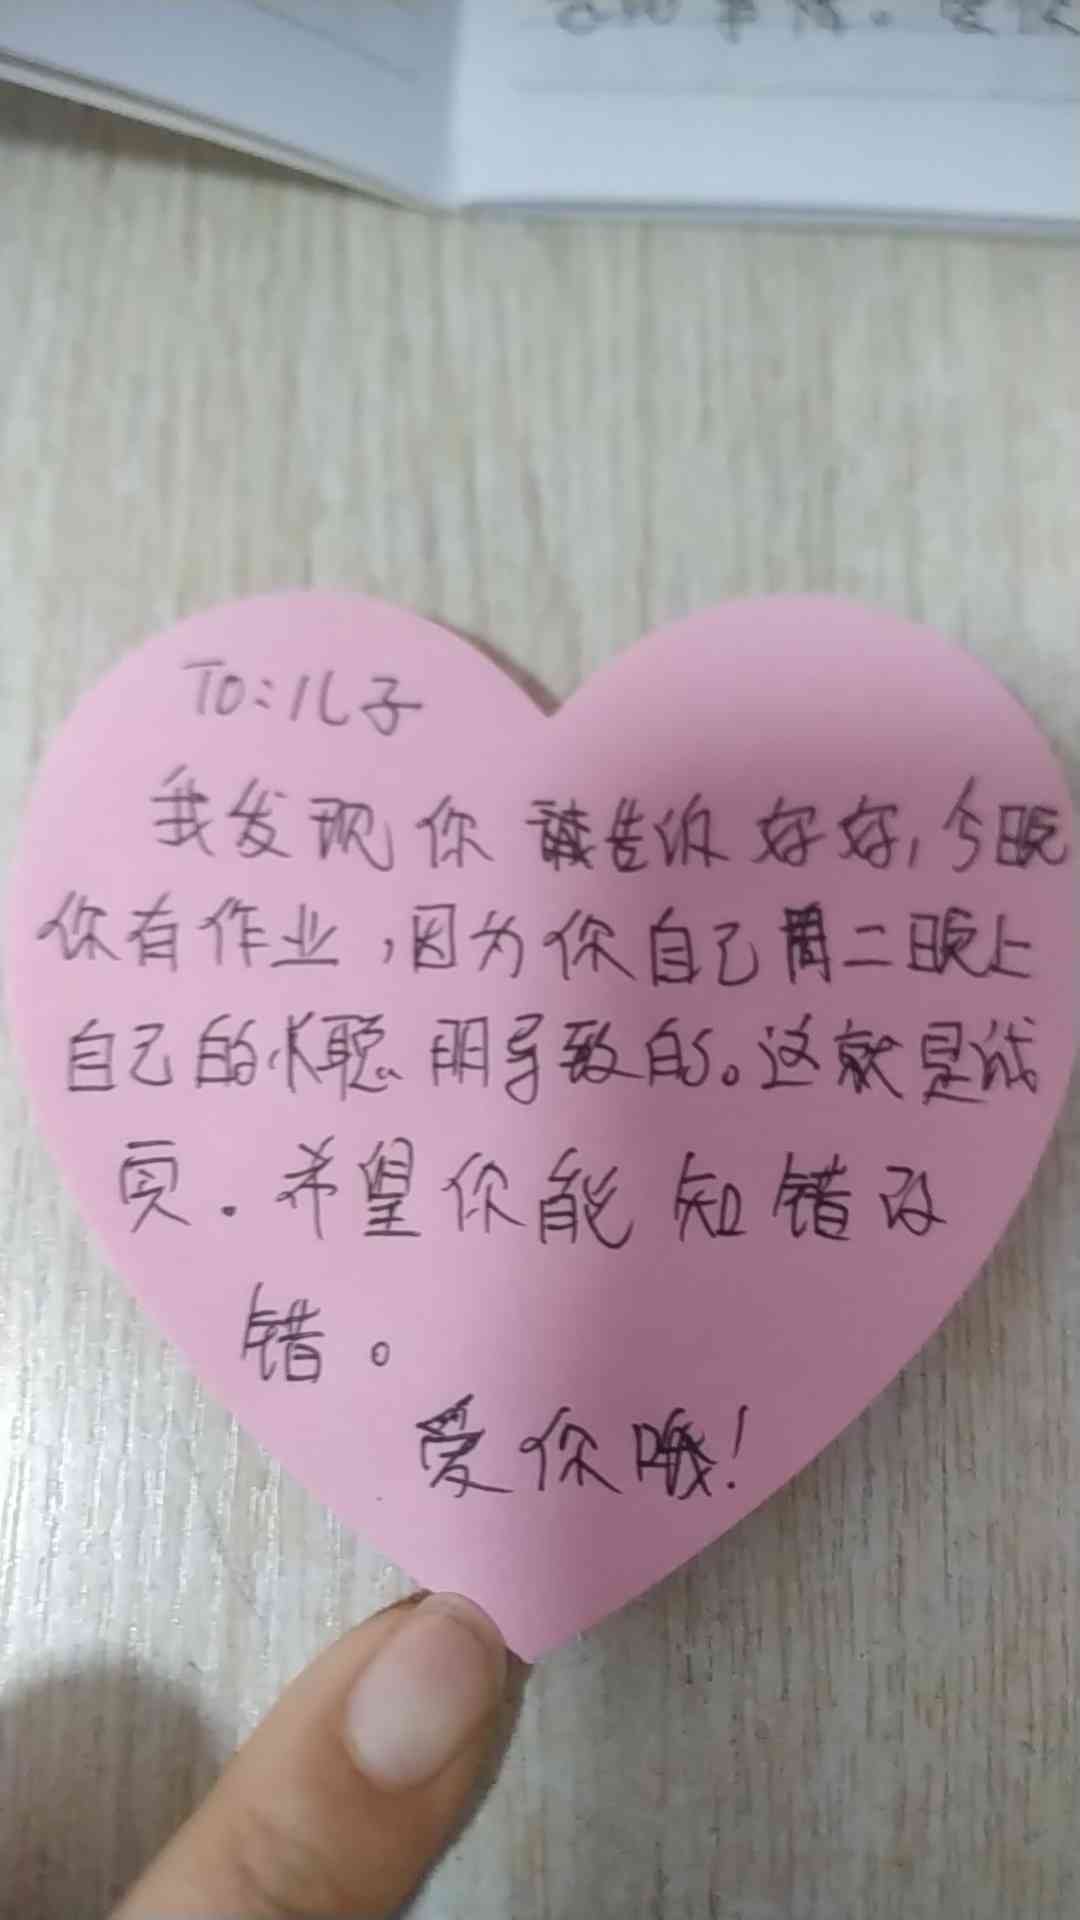 To:儿子
我发现你 读告诉 好好,今晚
你有作业,因为你自己周二晚上
自己的小聪明导致的。这就是诚
实.希望你能 知 错改
错。
爱你哦!